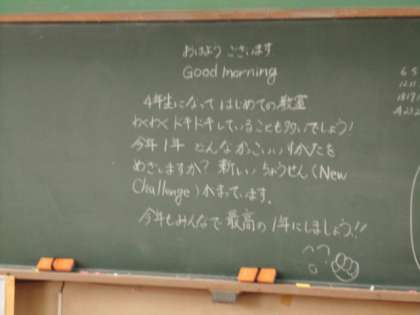 おはよう ございます
Good morning
4年生になって はじめての教室
わくわく ドキドキしていることも多いでしょう!
今年1年 どんなかっこいいすがたを
めざしますか? 新しい ちょうせん (New
Challenge) がまっています。
今年もみんなで 最高の 1年にしましょう!!
6 5